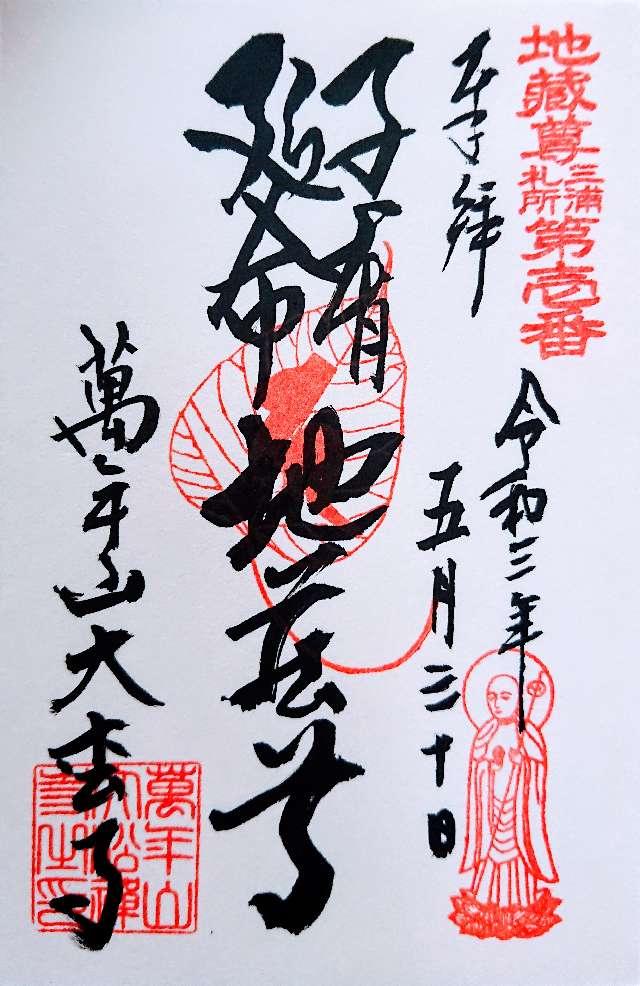 地藏尊三浦札所第壱番
奉拝
令和三年
五月三十日
子育
延命
地蔵尊
萬年山大松寺
萬年山
大松禪
寺之印